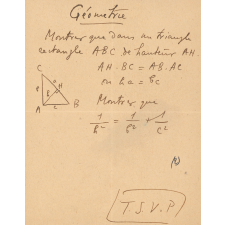 Géométrie
Montrer que dans un triangle
rectangle ABC de hauteur AH.
AH . BC = AB . AC
ou ha = bc
C
b h H
A c B
Montrer que
1/h² = 1/b² + 1/c²
T.S.V.P